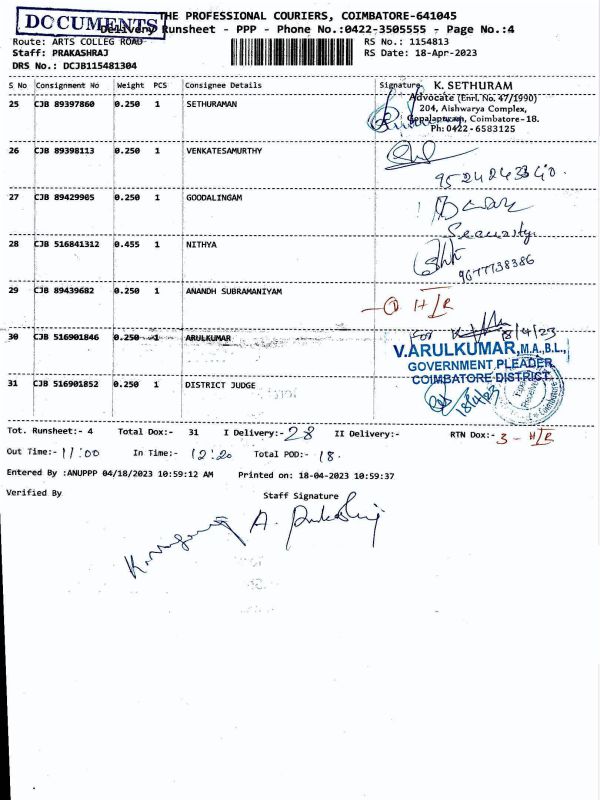 DOCUMENTS
THE PROFESSIONAL COURIERS, COIMBATORE-641045
Delivery Runsheet - PPP - Phone No.:0422-3505555 - Page No.:4
Route: ARTS COLLEG ROAD RS No.: 1154813
Staff: PRAKASHRAJ RS Date: 18-Apr-2023
DRS No.: DCJB115481304
S No Consignment No Weight PCS Consignee Details Signature
K. SETHURAM
Advocate (Enrl. No. 47/1990)
204, Aishwarya Complex,
Gopalapuram, Coimbatore-18.
Ph: 0422-6583125
25 CJB 89397860 0.250 1 SETHURAMAN
26 CJB 89398113 0.250 1 VENKATESAMURTHY
27 CJB 89429905 0.250 1 GOODALINGAM
Security
28 CJB 516841312 0.455 1 NITHYA
9677738386
29 CJB 89439682 0.250 1 ANANDH SUBRAMANIYAM
30 CJB 516901846 0.250 1 ARULKUMAR
For 18/4/23
V.ARULKUMAR, M.A., B.L.,
GOVERNMENT PLEADER,
COIMBATORE DISTRICT.
31 CJB 516901852 0.250 1 DISTRICT JUDGE
18/4/23
Tot. Runsheet:- 4 Total Dox:- 31 I Delivery:- 28 II Delivery:- RTN Dox:- 3
Out Time:- 11:00 In Time:- 12:20 Total POD:- 18.
Entered By :ANUPPP 04/18/2023 10:59:12 AM Printed on: 18-04-2023 10:59:37
Verified By Staff Signature